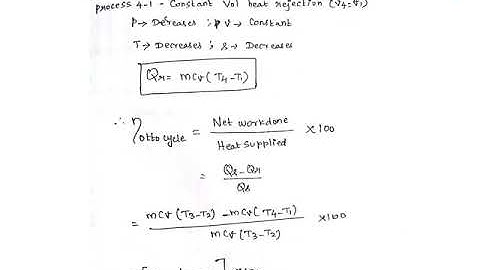 Process 4-1 - Constant Vol heat rejection (V4=V1)
P→ Decreases ; V → Constant
T→ Decreases ; s→ Decreases
Qr= mcv(T4-T1)
∴ η otto cycle = Net workdone / Heat supplied ×100
= Qs-Qr / Qs
= mcv(T3-T2) - mcv(T4-T1) / mcv(T3-T2) ×100